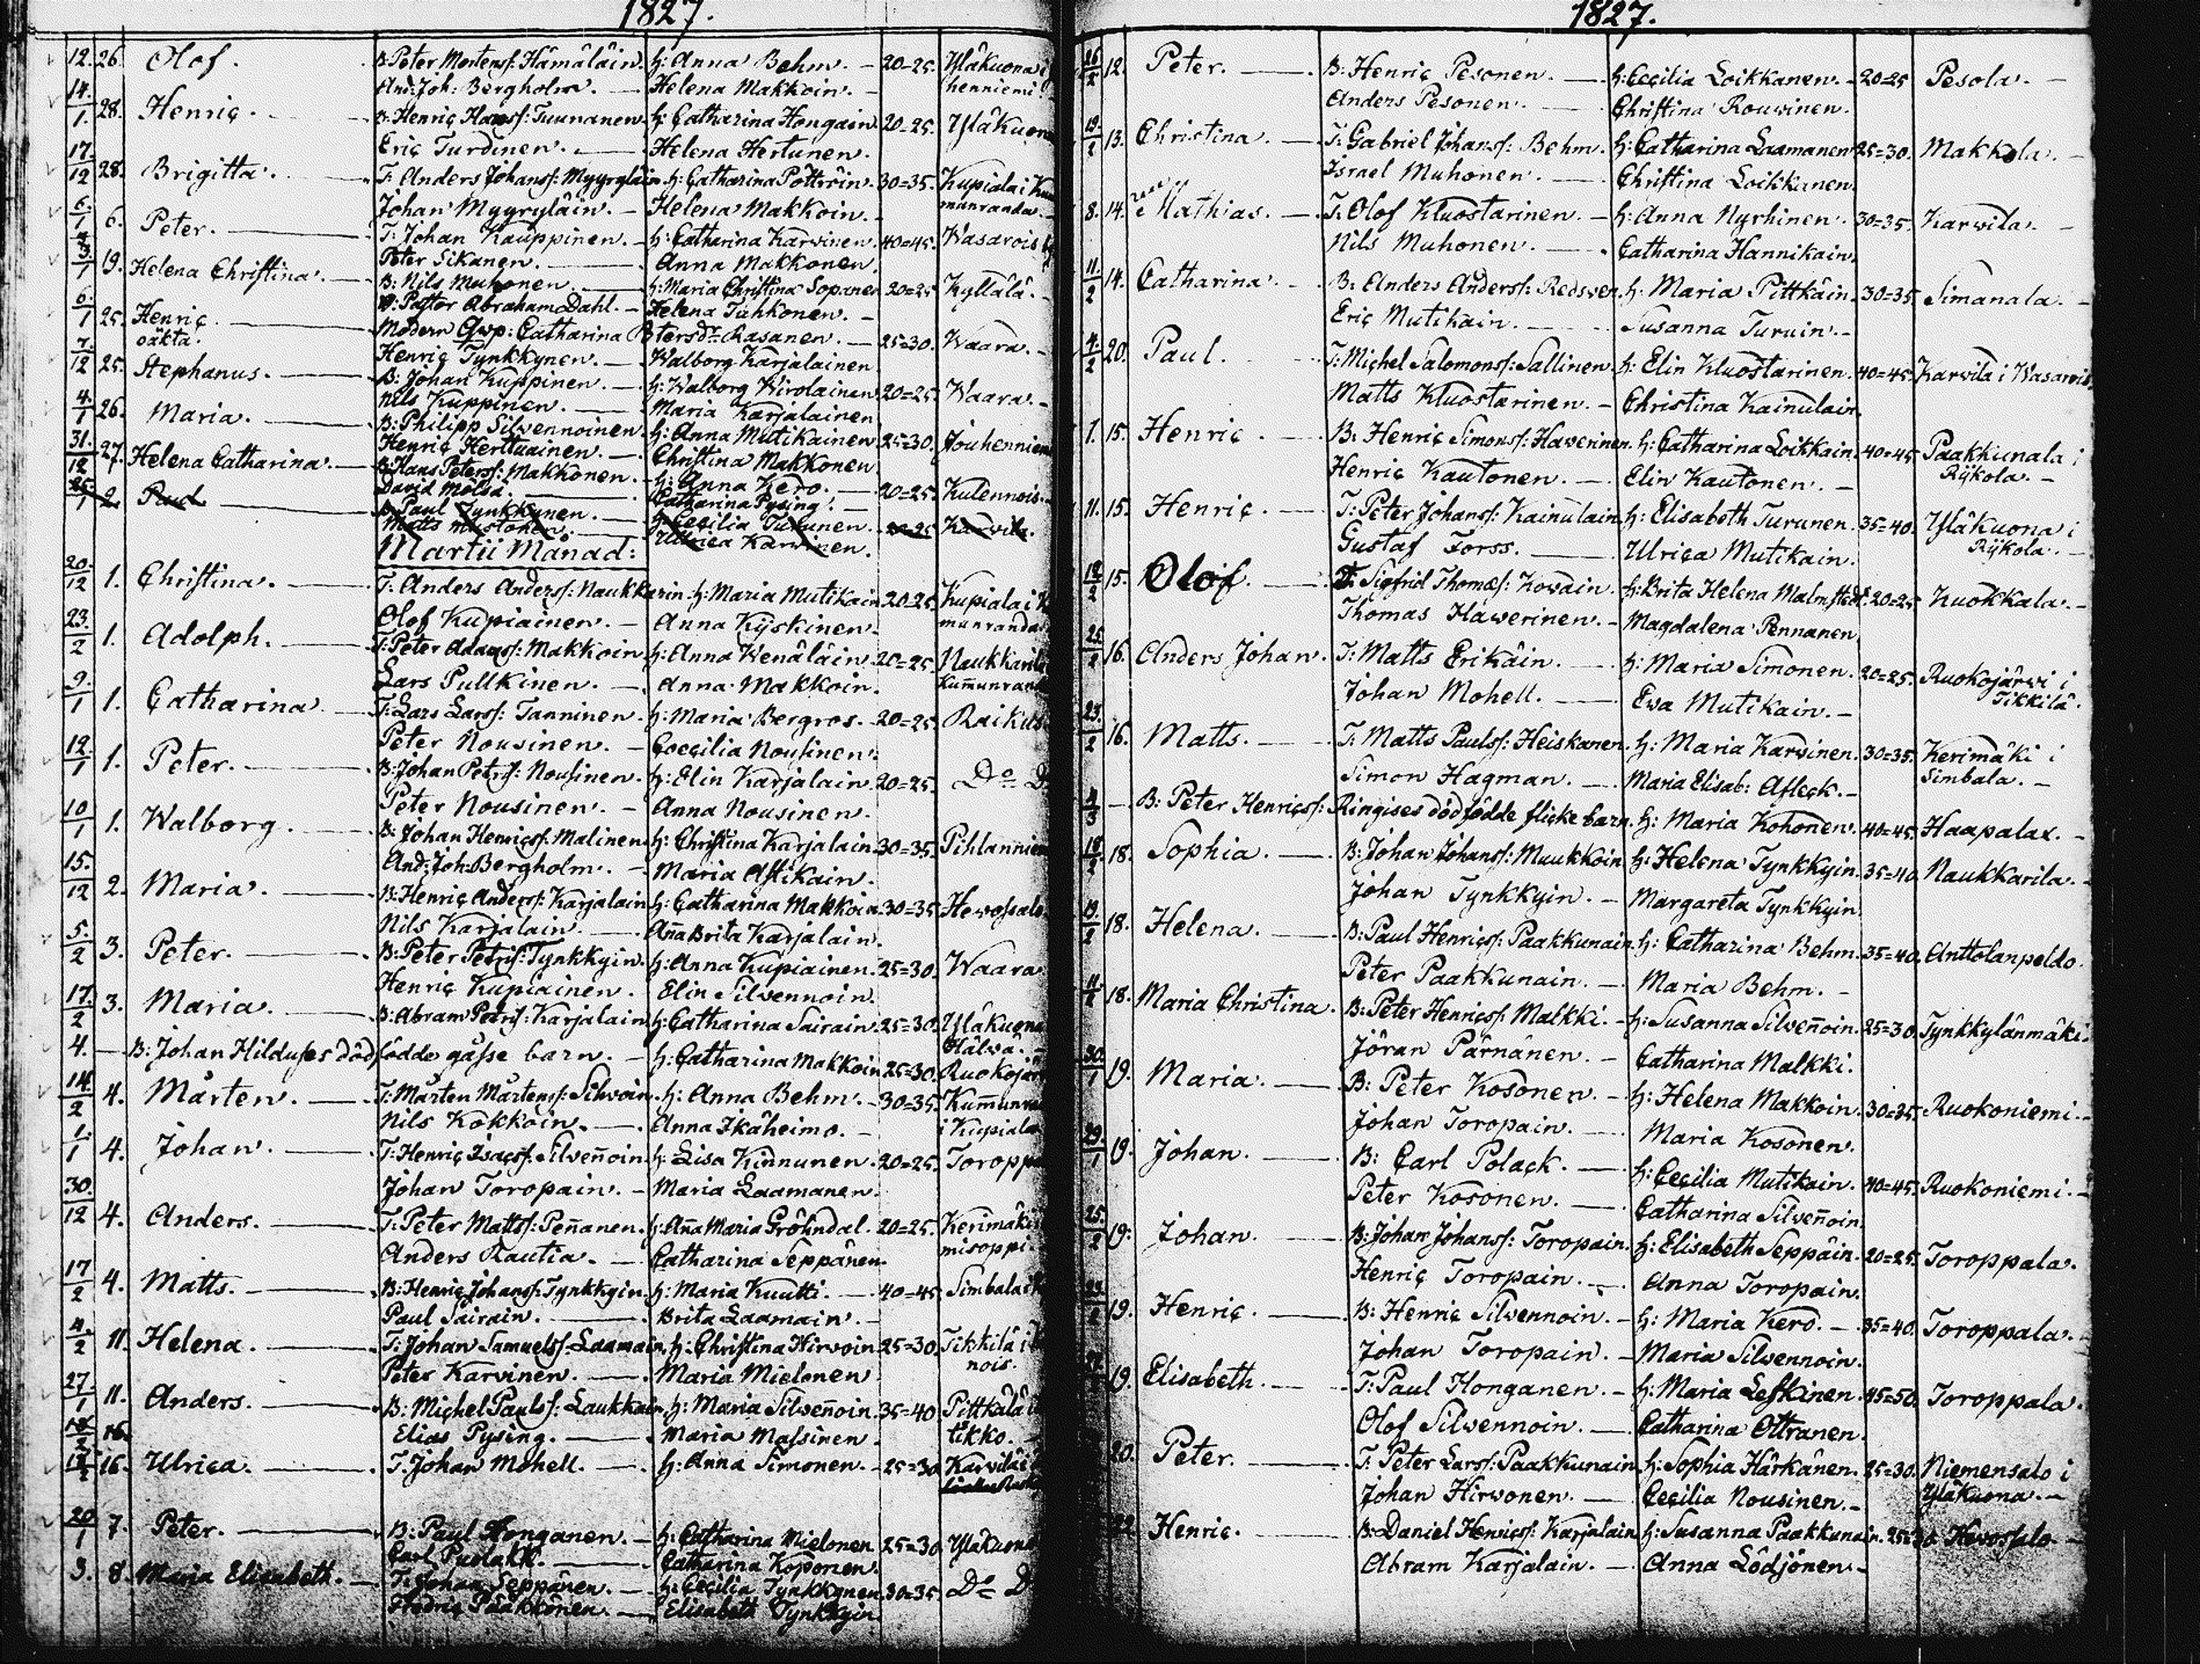 1827.
12. 26. Olof. B: Peter Mortensſ: Hämäläin. h: Anna Behm. 20=25. Yläkuona i
And: Joh: Bergholm. Helena Makkoin. henniemi.
14/1 28. Henric. B: Henric Hansſ: Tuunanen. h: Catharina Hongain. 20=25.
Eric Turdinen. Helena Hertunen.
17/12 28. Brigitta. T: Anders Johansſ: Myyryläin. h: Catharina Pöttröin. 30=35. Kupiala i
Johan Myyryläin. Helena Makkoin. munranda.
6/1 6. Peter. T: Johan Kauppinen. h: Catharina Karvinen. 40=45. Wasarois
Peter Sikanen. Anna Makkonen.
3/1 19. Helena Christina. B: Nils Muhonen. h: Maria Christina Sopanen 20=25 Kyllälä.
V: Pastor Abraham Dahl. Helena Tuhkonen.
6/1 25. Henric oäkta. Modern Qwp: Catharina Petersdr Rasanen. 25=30. Waara.
Henric Tynkkynen. Walborg Karjalainen
7/12 25. Stephanus. B: Johan Kuppinen. h: Walborg Wirolainen 20=25. Waara.
Nils Kuppinen. Maria Karjalainen
4/1 26. Maria. B: Philipp Silvennoinen. h: Anna Mutikainen 25=30. Jouhennien
Henric Herttuainen. Christina Makkonen
31/12 27. Helena Catharina. B: Hans Petersſ: Makkonen. h: Anna Kero. 20=25. Kulennois.
David Mölsä. Catharina Pysing.
2. Paul B: Paul Tynkkynen. h: Cecilia Turunen. 20=25 Karvila.
Matts Mustonen. Ulrica Karvinen.
Martii Månad:
20/12 1. Christina. T: Anders Andersſ: Naukkarin. h: Maria Mutikain 20=25. Kupiala i
Olof Kupiainen. Anna Kyskinen. munranda
23/2 1. Adolph. T: Peter Adamsſ: Makkoin. h: Anna Wenäläin. 20=25. Naukkarila
Lars Pullkinen. Anna Makkoin. Kum̄unrand
9/1 1. Catharina. T: Lars Larsſ: Tanninen. h: Maria Bergros. 20=25. Raikus
Peter Nousinen. Coecilia Nousinen.
12/1 1. Peter. B: Johan Petrſ: Nousinen. h: Elin Karjalain. 20=25. Do D
Peter Nousinen. Anna Nousinen.
10/1 1. Walborg. B: Johan Henricsſ: Malinen. h: Christina Karjalain. 30=35. Pihlannien
And: Joh: Bergholm. Maria Astikain.
15/12 2. Maria. B: Henric Andersſ: Karjalain. h: Catharina Makkoin 30=35. Hevossalo
Nils Karjalain. Ana Brita Karjalain.
5/2 3. Peter. B: Peter Petrſ: Tynkkyin. h: Anna Kupiainen. 25=30. Waara
Henric Kupiainen. Elin Silvennoin.
17/2 3. Maria. B: Abram Petrſ: Karjalain. h: Catharina Sairain. 25=30. Yläkuona
4. B: Johan Hilduses dödfödde gåsse barn. h: Catharina Makkoin 25=30. Hälvä. Ruokojär
14/2 4. Mårten. T: Mårten Mårtensſ: Silvoin. h: Anna Behm. 30=35. Kum̄unra
Nils Kokkoin. Anna Ikäheimo. i Kupiala
1/1 4. Johan. T: Henric Isacsſ: Silven̄oin. h: Lisa Kinnunen. 20=25. Toropp
Johan Toropain. Maria Laamanen.
30/12 4. Anders. T: Peter Mattsſ: Pen̄anen. h: An̄a Maria Gröhndal. 20=25. Kerimäki
Anders Rautia. Catharina Seppänen. misoppi.
17/2 4. Matts. B: Henric Johansſ: Tynkkyin. h: Maria Kuutti. 40=45. Simbala
Paul Sairain. Brita Laamain.
4/2 11. Helena. T: Johan Samuelsſ: Laamain. h: Christina Hirvoin. 25=30. Tikkilä i
Peter Karvinen. Maria Mielonen nois.
27/1 11. Anders. B: Michel Paulsſ: Laukkain. h: Maria Silven̄oin. 35=40 Pittkälä
Elias Pysing. Maria Massinen. tikko.
16. Ulrica. T: Johan Mohell. h: Anna Simonen. 25=30 Karvila
20/1 7. Peter. B: Paul Honganen. h: Catharina Mielonen 25=30. Yläkuona
Carl Puolakk. Catharina Koponen.
3. 8. Maria Elisabeth. T: Johan Seppänen. h: Cecilia Tynkkynen 30=35. Do D
Fredric Pääkkönen. Elisabeth Tynkkyin.
1827.
26/2 12. Peter. B: Henric Pesonen. h: Cecilia Loikkanen. 20=25 Pesola.
Anders Pesonen. Christina Rouvinen.
19/2 13. Christina. T: Gabriel Johansſ: Behm. h: Catharina Laamanen 25=30. Makkola.
Israel Muhonen. Christina Loikkanen.
8. 14. Mathias. T: Olof Kluostarinen. h: Anna Nyrhinen. 30=35. Karvila.
Nils Muhonen. Catharina Hannikain.
11/2 14. Catharina. B: Anders Andersſ: Redsven. h: Maria Pittkäin. 30=35. Simanala.
Eric Mutikain. Susanna Turuin.
4/2 20. Paul. T: Michel Salomonsſ: Sallinen. h: Elin Kluostarinen. 40=45. Karvila i Wasarois
Matts Kluostarinen. Christina Kainulain.
1. 15. Henric. B: Henric Simonsſ: Haverinen. h: Catharina Loikkain. 40=45. Paakkunala i
Henric Kautonen. Elin Kautonen. Rijkola.
11. 15. Henric. T: Peter Johansſ: Kainulain. h: Elisabeth Turunen. 35=40. Yläkuona i
Gustaf Forss. Ulrica Mutikain. Rijkola.
12/2 15. Olof. T: Sigfrid Thomasſ: Kovain. h: Brita Helena Malmstedt. 20=25 Kuokkala.
Thomas Häverinen. Magdalena Pennanen.
25/2 16. Anders Johan. T: Matts Erikäin. h: Maria Simonen. 20=25. Ruokojärvi i
Johan Mohell. Eva Mutikain. Tikkilä.
23/2 16. Matts. T: Matts Paulsſ: Heiskanen. h: Maria Karvinen. 30=35. Kerimäki i
Simon Hagman. Maria Elisab: Afleck. Simbala.
4/3 B: Peter Henricsſ: Ringises dödfödde flicke barn. h: Maria Kohonen. 40=45. Haapalax.
18. Sophia. B: Johan Johansſ: Muukkoin. h: Helena Tynkkyin. 35=40. Naukkarila.
Johan Tynkkyin. Margareta Tynkkyin.
19/2 18. Helena. B: Paul Henricsſ: Paakkunain. h: Catharina Behm. 35=40. Anttolanpeldo.
Peter Paakkunain. Maria Behm.
18. Maria Christina. B: Peter Henricsſ: Malkki. h: Susanna Silven̄oin. 25=30. Tynkkylänmäki.
Jöran Pärnänen. Catharina Malkki.
30/1 19. Maria. B: Peter Kosonen. h: Helena Makkoin. 30=35. Ruokoniemi.
Johan Toropain. Maria Kosonen.
29/1 19. Johan. B: Carl Polack. h: Cecilia Mutikain. 40=45. Ruokoniemi.
Peter Kosonen. Catharina Silven̄oin.
25/2 19. Johan. B: Johan Johansſ: Toropain. h: Elisabeth Seppäin. 20=25. Toroppala.
Henric Toropain. Anna Toropain.
19. Henric. B: Henric Silvennoin. h: Maria Kero. 35=40. Toroppala.
Johan Toropain. Maria Silvennoin.
19. Elisabeth. T: Paul Honganen. h: Maria Leskinen. 45=50. Toroppala.
Olof Silvennoin. Catharina Ottranen.
20. Peter. T: Peter Larsſ: Paakkunain. h: Sophia Härkänen. 25=30. Niemensalo i
Johan Hirvonen. Cecilia Nousinen. Yläkuona.
22. Henric. B: Daniel Henricsſ: Karjalain. h: Susanna Paakkunain. 25=30. Hevossalo
Abram Karjalain. Anna Lödjönen.